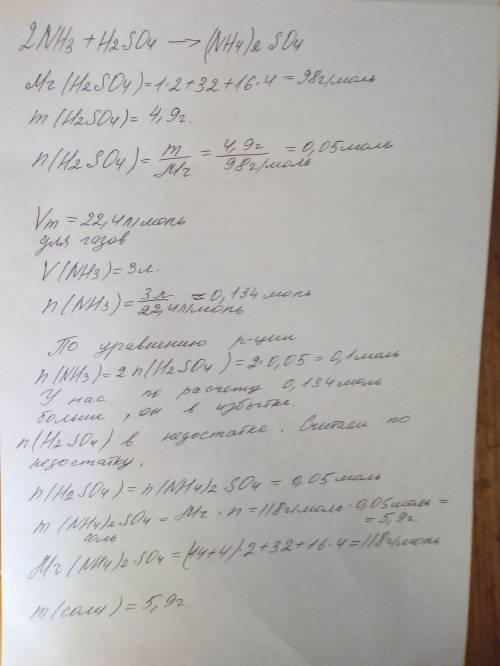 2NH3 + H2SO4 → (NH4)2 SO4
Mr (H2SO4) = 1·2+32+16·4 = 98г/моль
m (H2SO4) = 4,9г.
n(H2SO4) = m/Mr = 4,9г/98г/моль = 0,05моль
Vm = 22,4л/моль
для газов
V(NH3) = 3л.
n(NH3) = 3л/22,4л/моль ≈ 0,134 моль
По уравнению р-ции
n(NH3) = 2 n(H2SO4) = 2·0,05 = 0,1моль
У нас по расчету 0,134 моль
больше, он в избытке.
n(H2SO4) в недостатке. Считаем по
недостатку.
n(H2SO4) = n(NH4)2 SO4 = 0,05 моль
m (NH4)2SO4 = Mr · n = 118г/моль · 0,05моль =
соль = 5,9г.
Mr (NH4)2SO4 = (14+4)·2+32+16·4 = 118г/моль
m (соли) = 5,9г.